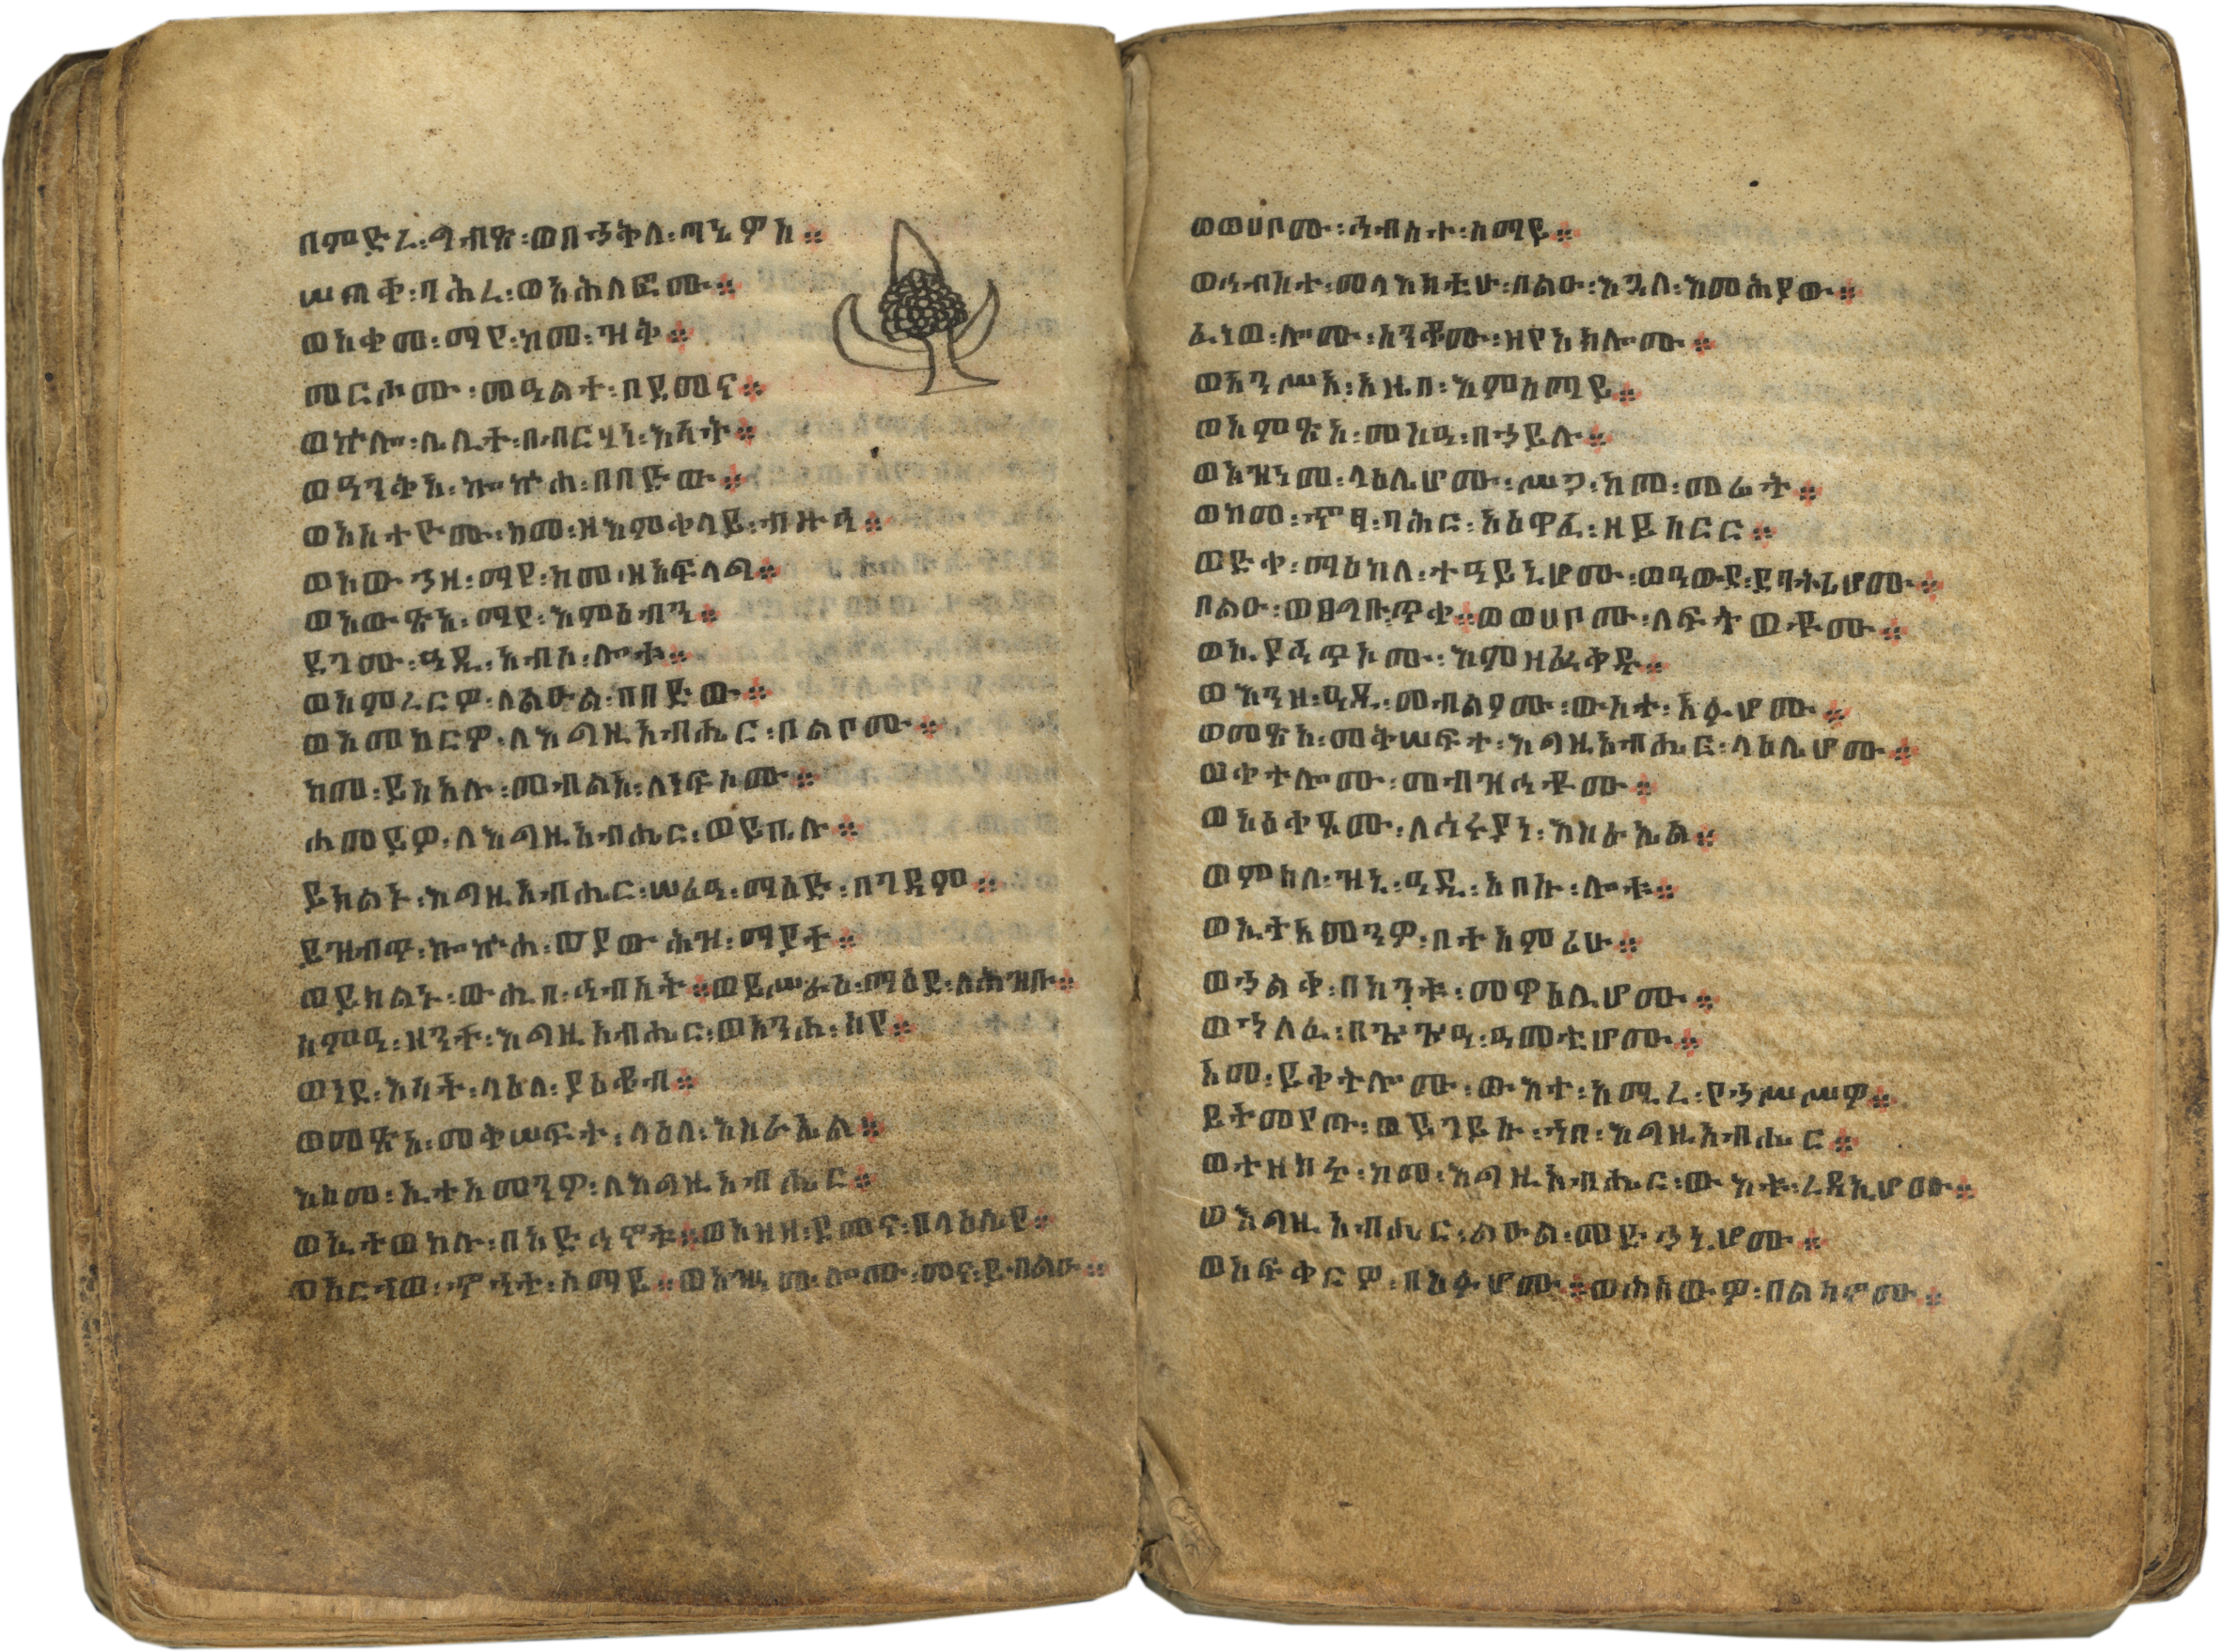 በምድረ፡ግብጽ፡ወበኀቅለ፡ጣኔዎስ።
ሠጠቀ፡ባሕረ፡ወአሕለፎሙ።
ወአቀመ፡ማየ፡ከመ፡ዝቅ።
መርሖሙ፡መዓልተ፡በደመና።
ወኵሎ፡ሌሊተ፡በብርሃነ፡እሳት።
ወዓንቅአ፡ኰኵሐ፡በበድው።
ወአስተዮሙ፡ከመ፡ዘእምቀላይ፡ብዙኅ።
ወአውኀዘ፡ማየ፡ከመ፡ዘአፍላግ።
ወአውጽአ፡ማየ፡እምዕብን።
ደገሙ፡ዓዲ፡አብሶ፡ሎቱ።
ወአምረርዎ፡ለልዑል፡በበድው።
ወአመከርዎ፡ለእግዚአብሔር፡በልቦሙ።
ከመ፡ይስአሉ፡መብልዐ፡ለነፍሶሙ።
ሐመይዎ፡ለእግዚአብሔር፡ወይቤሉ።
ይክልኑ፡እግዚአብሔር፡ሠሪዓ፡ማዕድ፡በገዳም።
ይዝብጥ፡ኰኵሐ፡ወያውሕዝ፡ማያት።
ወይክልኑ፡ውሒበ፡ኅብስት።ወይሠራዕ፡ማዕደ፡ለሕዝቡ።
ሰምዓ፡ዘንተ፡እግዚአብሔር፡ወአንሐ፡ከየ።
ወነደ፡እሳት፡ላዕለ፡ያዕቆብ።
ወመጽአ፡መቅሠፍት፡ላዕለ፡እስራኤል።
እስመ፡ኢተአመንዎ፡ለእግዚአብሔር።
ወኢተወከሉ፡በአድኅኖቱ።ወአዘዘ፡ደመና፡በላዕሌየ።
ወአርኀወ፡ኆኅተ፡ሰማይ።ወአዝነመ፡ሎሙ፡መና፡ይብልዑ።
ወወሀቦሙ፡ኅብስተ፡ሰማይ።
ወኅብስተ፡መላእክቲሁ፡በልዑ፡እጓለ፡እመሕያው።
ፈነወ፡ሎሙ፡ሥንቆሙ፡ዘየአክሎሙ።
ወአንሥአ፡አዜበ፡እምሰማይ።
ወአምጽአ፡መስዓ፡በኀይሉ።
ወአዝነመ፡ላዕሌሆሙ፡ሥጋ፡ከመ፡መሬት።
ወከመ፡ኆፃ፡ባሕር፡አዕዋፈ፡ዘይሰርር።
ወድቀ፡ማዕከለ፡ተዓይኒሆሙ፡ወዓውደ፡ደባትሪሆሙ።
በልዑ፡ወፀግቡ፡ጥቀ።ወወሀቦሙ፡ለፍትወቶሙ።
ወኢያኅጥኦሙ፡እምዘፈቀዱ።
ወእንዘ፡ዓዲ፡መብልዖሙ፡ውስተ፡አፉሆሙ።
ወመጽአ፡መቅሠፍተ፡እግዚአብሔር፡ላዕሌሆሙ።
ወቀተሎሙ፡መብዝኅቶሙ።
ወአዕቀፆሙ፡ለኅሩያነ፡እስራኤል።
ወምስለ፡ዝኒ፡ዓዲ፡አበሱ፡ሎቱ።
ወኢተአመንዎ፡በተአምሪሁ።
ወኀልቀ፡በከንቱ፡መዋዕሊሆሙ።
ወኀለፈ፡በጕጕዓ፡ዓመቲሆሙ።
አመ፡ይቀትሎሙ፡ውእተ፡አሚረ፡የኀሥሥዎ።
ይትመየጡ፡ወይገይሱ፡ኀበ፡እግዚአብሔር።
ወተዘከሩ፡ከመ፡እግዚአብሔር፡ውእቱ፡ረዳኢሆሙ።
ወእግዚአብሔር፡ልዑል፡መድኀኒሆሙ።
ወአፍቀርዎ፡በአፉሆሙ።ወሐሰውዎ፡በልሳኖሙ።